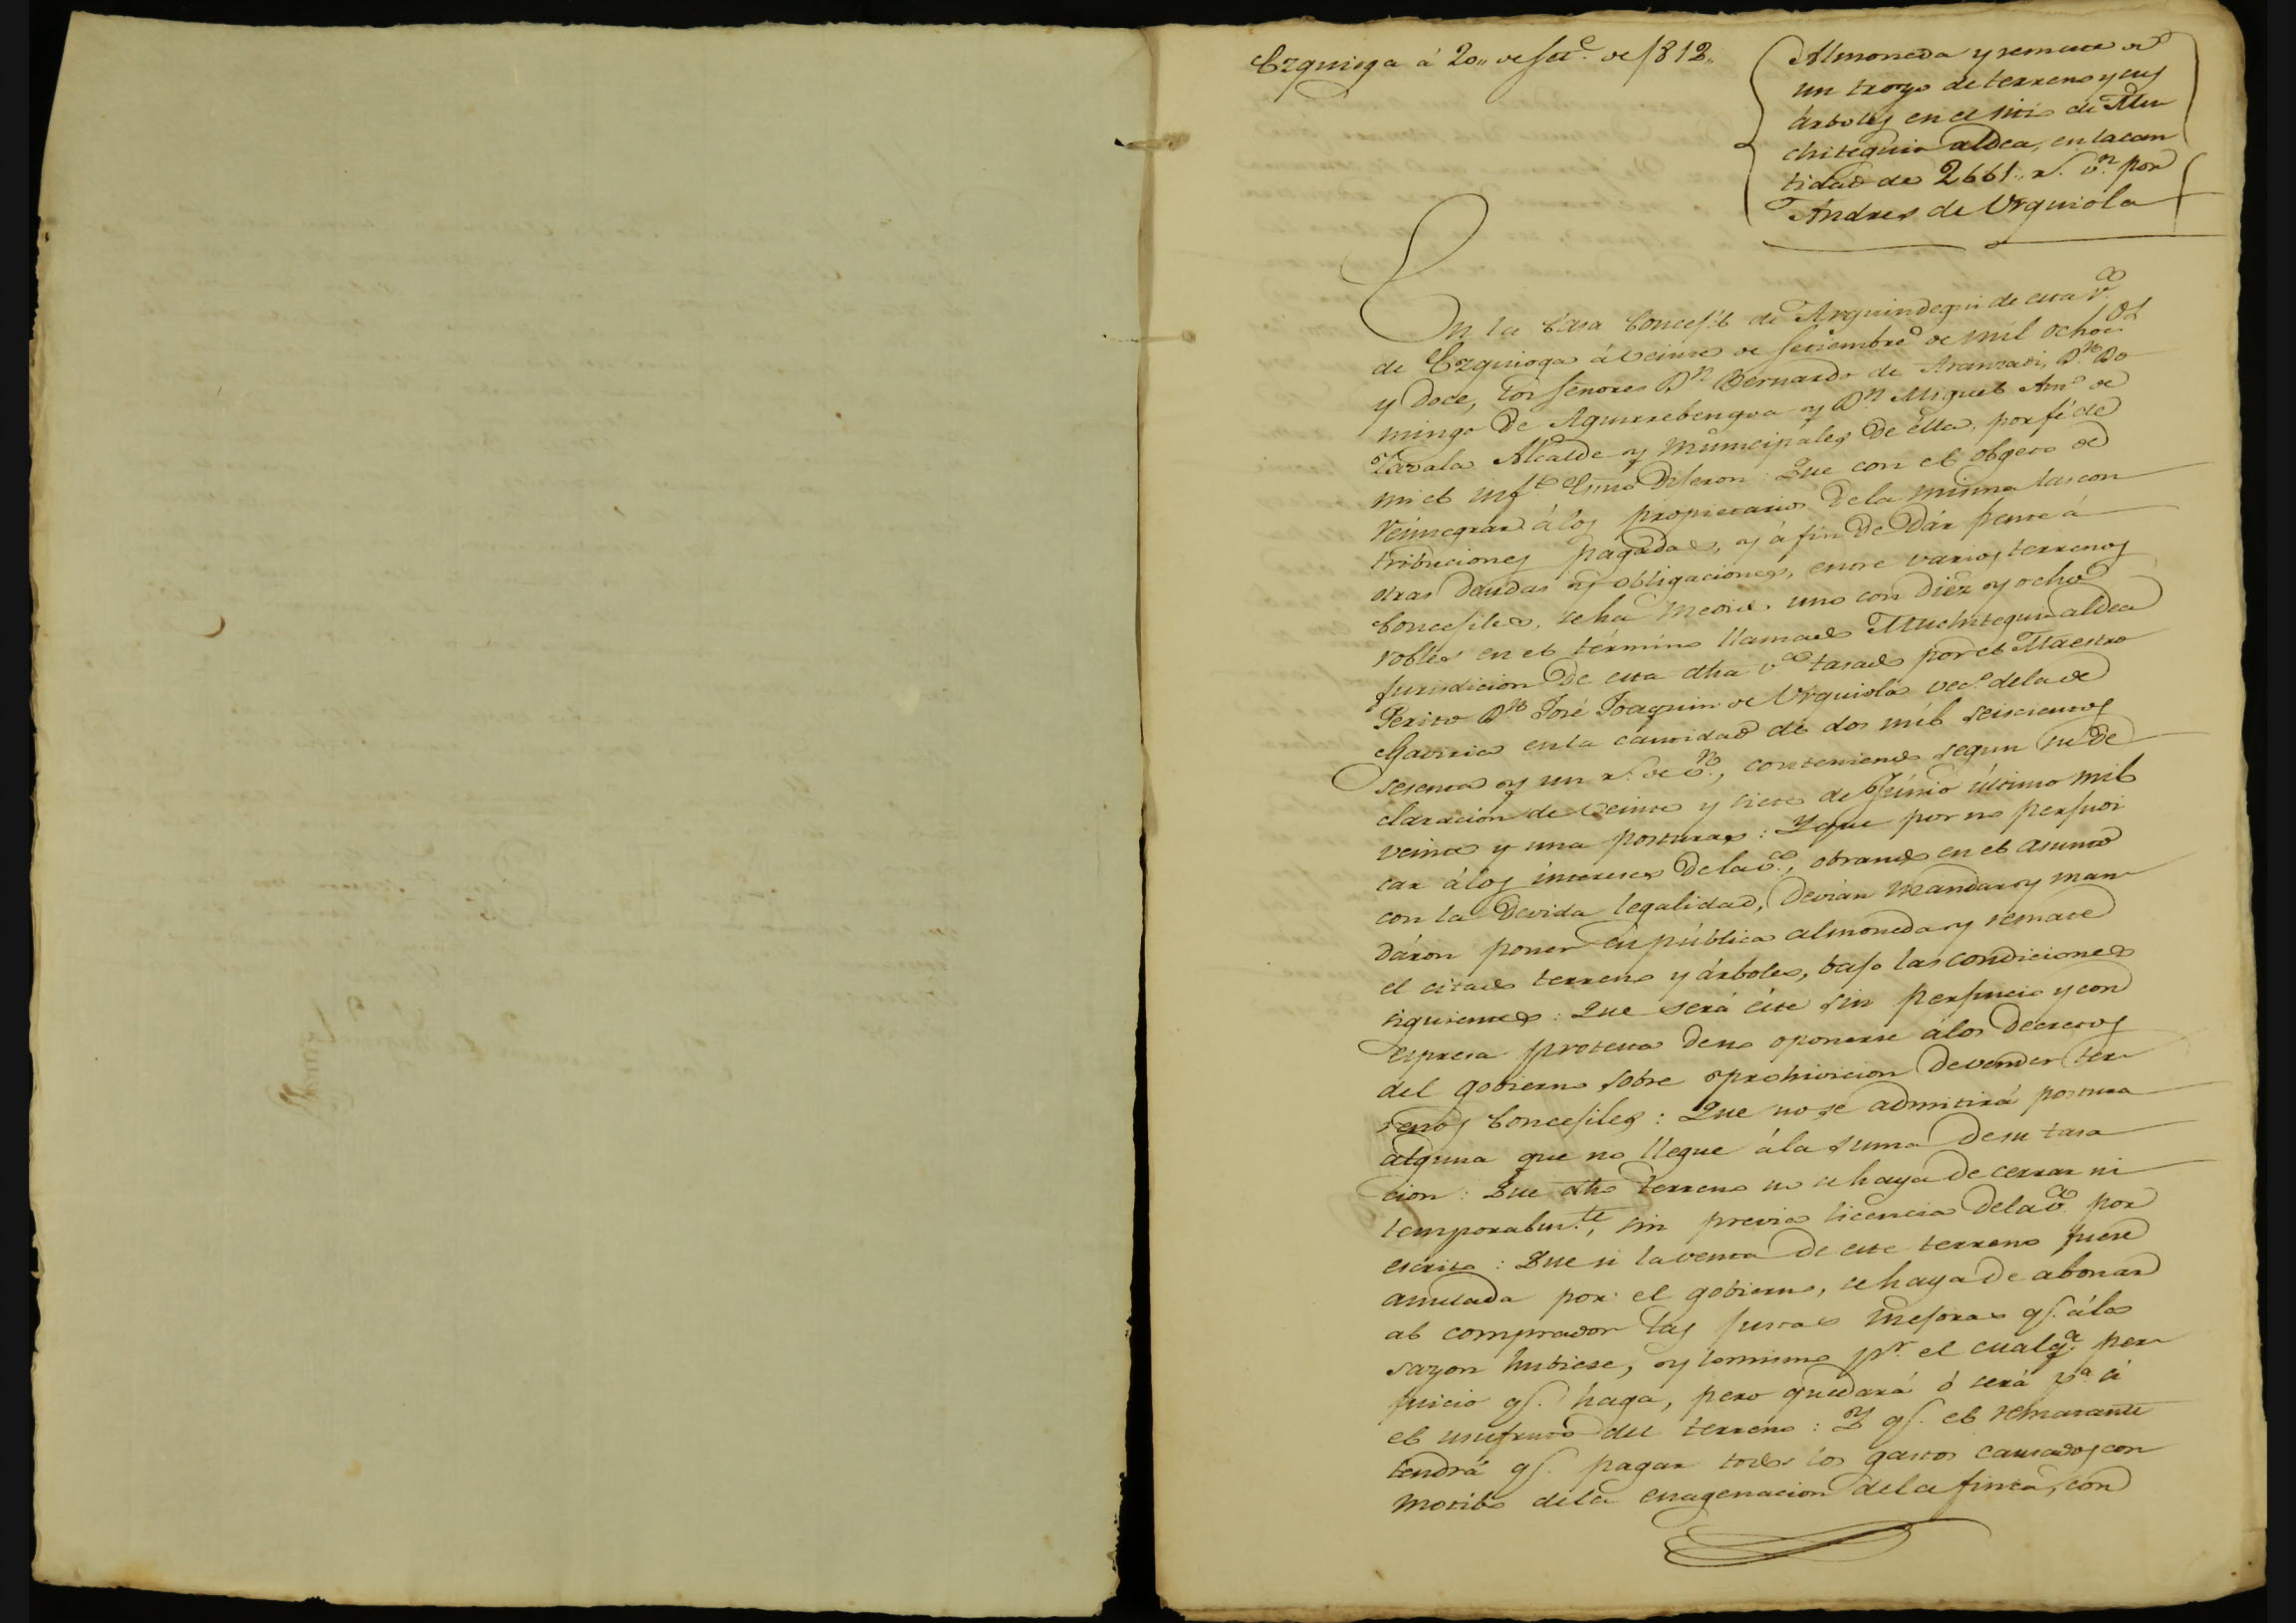 Ezquioga á 20,, de Set.e de 1812,,
Almoneda y remate de
un trozo de terreno y sus
árboles en el sitio de Mu
chitequi aldea, en la can
tidad de 2661,, r.s v.n por
Andres de Urquiola
En la Casa Concejil de Arguindegui de esta v.a
de Ezquioga á veinte de Setiembre de mil ochoc.os
y doce, los Señores D.n Bernardo de Aranzadi, D.n Do
mingo de Aguirrebengoa y D.n Miguel Ant.o de
Zavala Alcalde y Municipáles de ella, por fé de
mi el inf.to Essno Dijeron: Que con el obgeto de
reintegrar á los propietarios de la misma las con
tribuciones pagadas, y á fin de Dár frente á
otras deudas y obligaciones, entre varios terrenos
Concejiles, se ha medido uno con diez y ocho
robles en el término llamado Muchitequi aldea
Jurisdicion de esta dha v.a tasado por el Maestro
Perito D.n José Joaquin de Urquiola vec.o de la de
Gaviria en la cantidad de dos mil seiscientos
sesenta y un r.s de v.n, conteniendo segun su de
claracion de veinte y siete de Júnio último mil
veinte y una posturas: Y que por no perjudi
car á los intereses de la v.a, obrando en el asunto
con la devida legalidad, devian mandar y man
dáron poner en pública almoneda y remate
el citado terreno y árboles, bajo las condiciones
siguientes: Que será éste sin perjuicio y con
espresa protesta de no oponerse á los decretos
del gobierno sobre prohivicion de vender ter
renos Concejiles: Que no se admitirá postura
alguna que no llegue á la suma de su tasa
cion: Que dho terreno no se haya de cerrar ni
temporalm.te, sin previa licencia de la v.a por
escrito: Que si la venta de este terreno fuese
anulada por el gobierno, se haya de abonar
al comprador las justas mejoras q.e á la
sazon hubiese, y lo mismo p.r el cualq.a per
juicio q.e haga, pero quedará ó será p.a si
el usufruto del terreno: Y q.e el rematante
tendrá q.e pagar todos los gastos causados con
motibo de la enagenacion de la finca, con